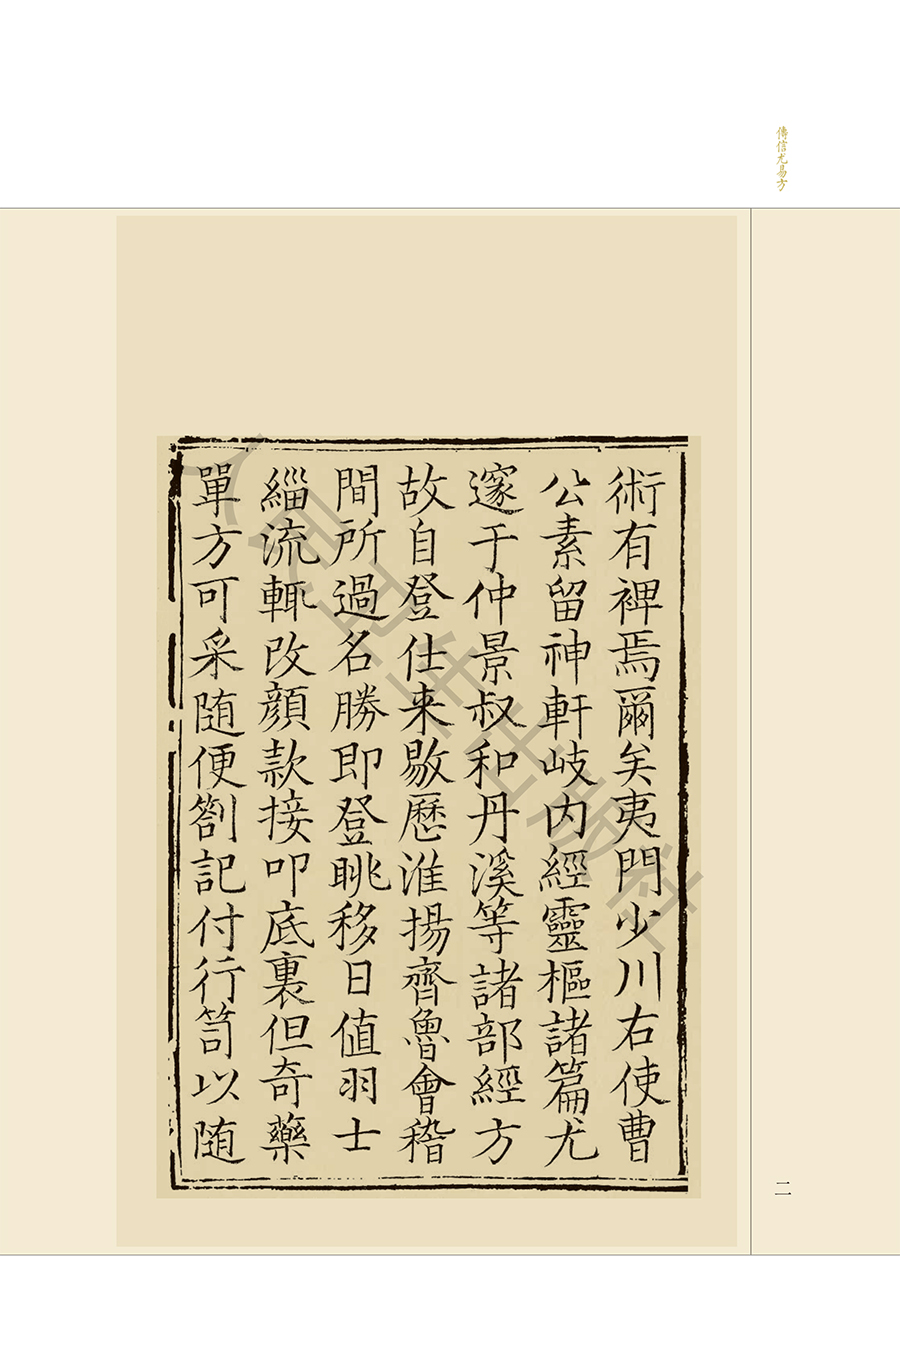 傳信尤易方
術有裨焉爾矣夷門少川右使曹
公素留神軒岐内經靈樞諸篇尤
邃于仲景叔和丹溪等諸部經方
故自登仕来敭歷淮揚齊魯會稽
間所過名勝即登眺移日值羽士
緇流輒改顏款接叩底裏但奇藥
單方可采随便劄記付行笥以随
二
人民卫生出版社